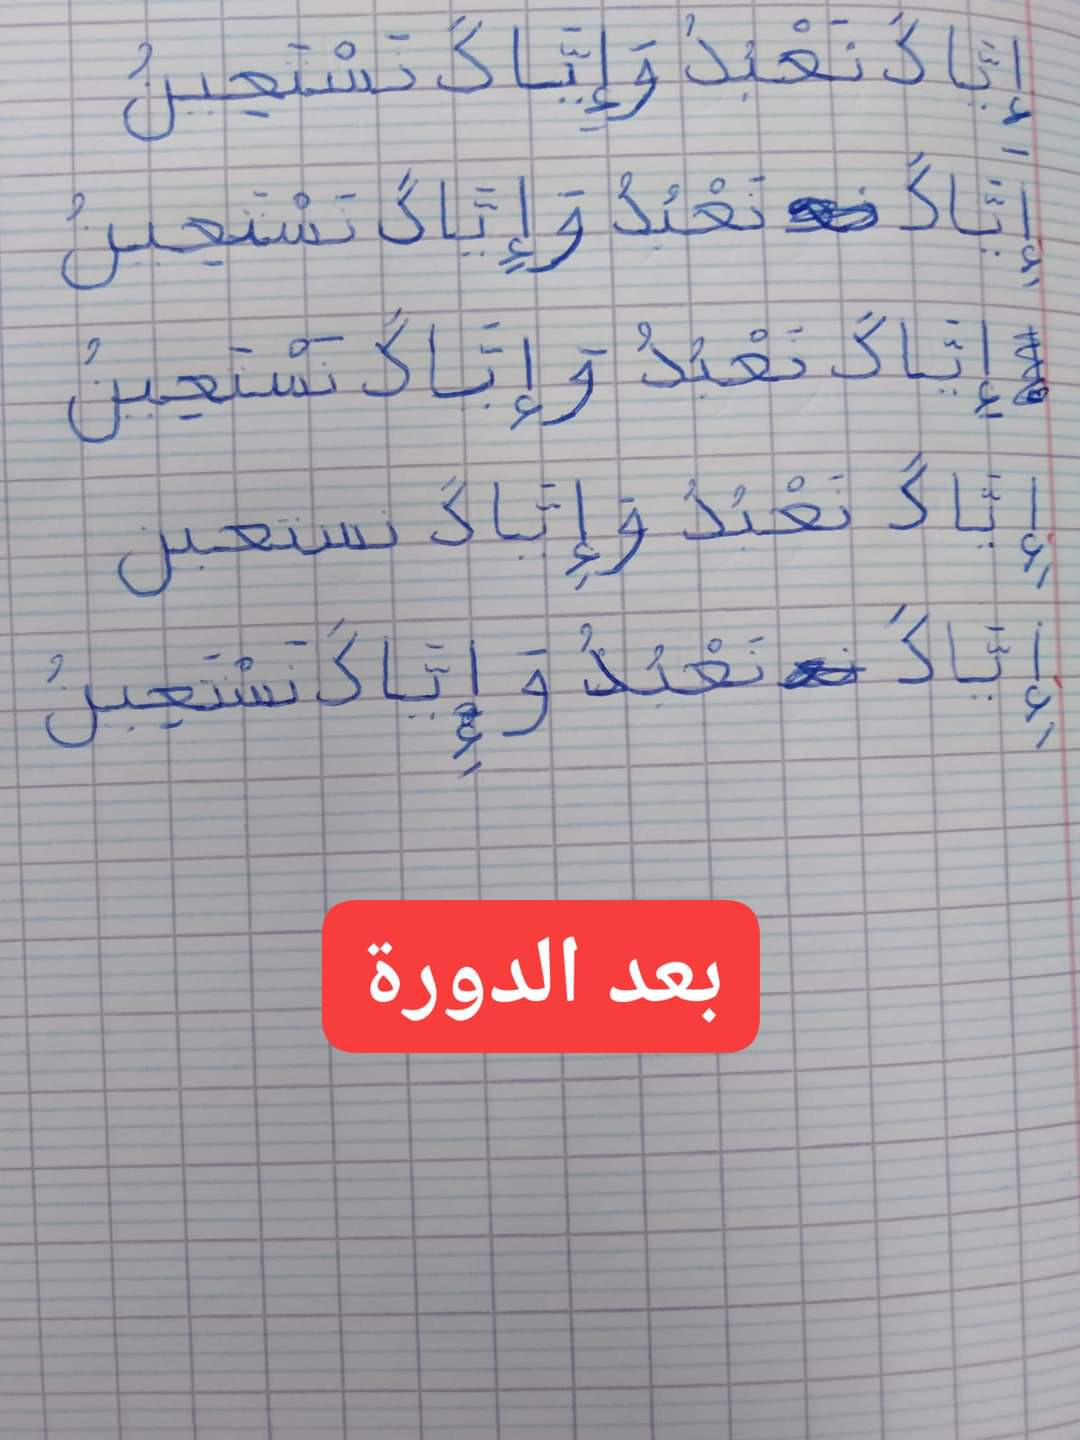 إِيَّاكَ نَعْبُدُ وَإِيَّاكَ نَسْتَعِينُ
إِيَّاكَ نَعْبُدُ وَإِيَّاكَ نَسْتَعِينُ
إِيَّاكَ نَعْبُدُ وَإِيَّاكَ نَسْتَعِينُ
إِيَّاكَ نَعْبُدُ وَإِيَّاكَ نستعين
إِيَّاكَ نَعْبُدُ وَإِيَّاكَ نَسْتَعِينُ
بعد الدورة